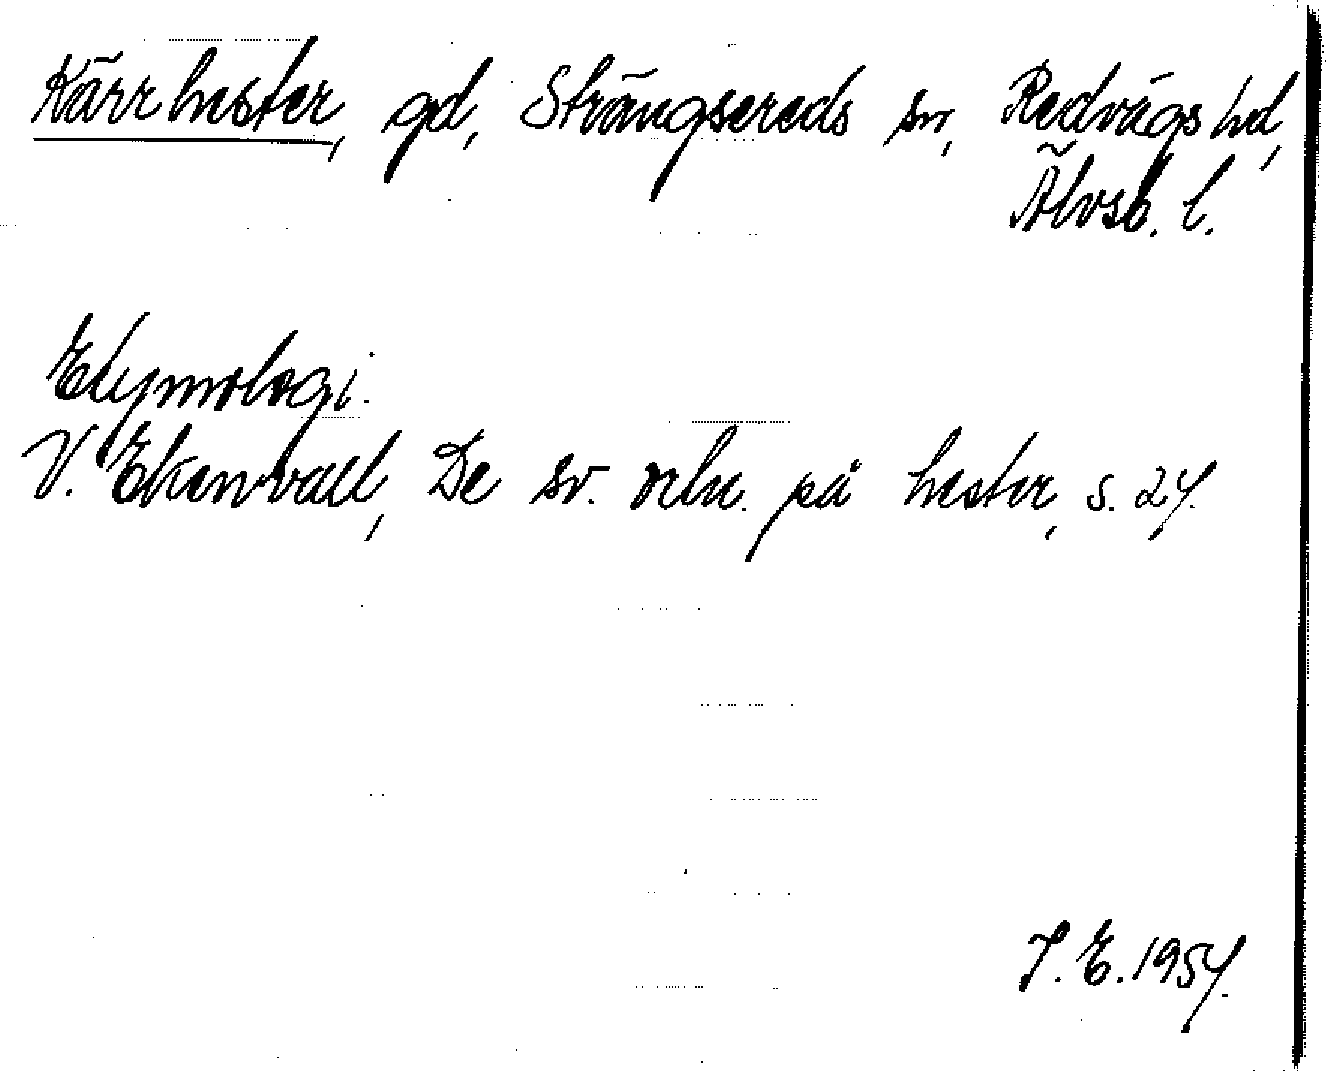 Kärrhester, gd, Strängsereds sn, Redvägs hd,
Älvsb. l.
Etymologi.
V. Ekenvall, De sv. ortn. på hester, s. 27.
I. E. 1957.